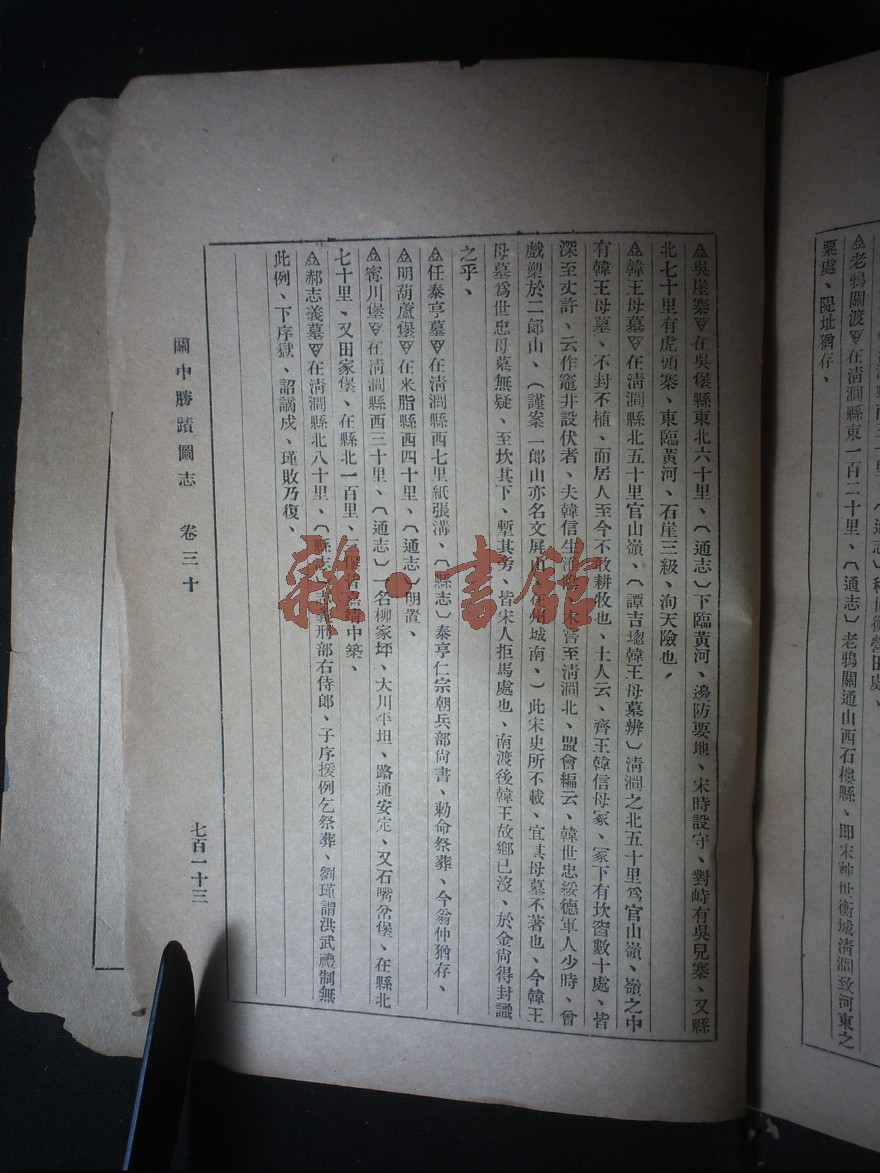 粟處、隄址猶存、
△老鴉關渡▽在淸澗縣東一百二十里、(通志)老鴉關通山西石樓縣、卽宋种世衡城淸澗致河東之
△吳崖寨▽在吳堡縣東北六十里、(通志)下臨黃河、邊防要地、宋時設守、對峙有吳兒寨、又縣
北七十里有虎頭寨、東臨黃河、石崖三級、洵天險也、
△韓王母墓▽在淸澗縣北五十里官山嶺、(譚吉璁韓王母墓辨)淸澗之北五十里爲官山嶺、嶺之中
有韓王母墓、不封不植、而居人至今不敢耕牧也、土人云、齊王韓信母冢、冢下有坎窞數十處、皆
深至丈許、云作竈井設伏者、夫韓信生淮 未嘗至淸澗北、盟會編云、韓世忠綏德軍人少時、曾
戲槊於二郞山、(謹案 二郞山亦名文屏山、在州城南、)此宋史所不載、宜其母墓不著也、今韓王
母墓爲世忠母墓無疑、至坎其下、塹其旁、皆宋人拒馬處也、南渡後韓王故鄉已沒、於金尙得封識
之乎、
△任泰亨墓▽在淸澗縣西七里紙張溝、(縣志)泰亨仁宗朝兵部尙書、勅命祭葬、今翁仲猶存、
△明葫蘆堡▽在米脂縣西四十里、(通志)明置、
△寗川堡▽在淸澗縣西三十里、(通志)一名柳家坪、大川平坦、路通安定、又石嘴岔堡、在縣北
七十里、又田家堡、在縣北一百里、 中築、
△郝志義墓▽在淸澗縣北八十里、(縣志)志義刑部右侍郞、子序援例乞祭葬、劉瑾謂洪武禮制無
此例、下序獄、詔謫戍、瑾敗乃復、
關中勝蹟圖志 卷三十 七百一十三
雜·書館